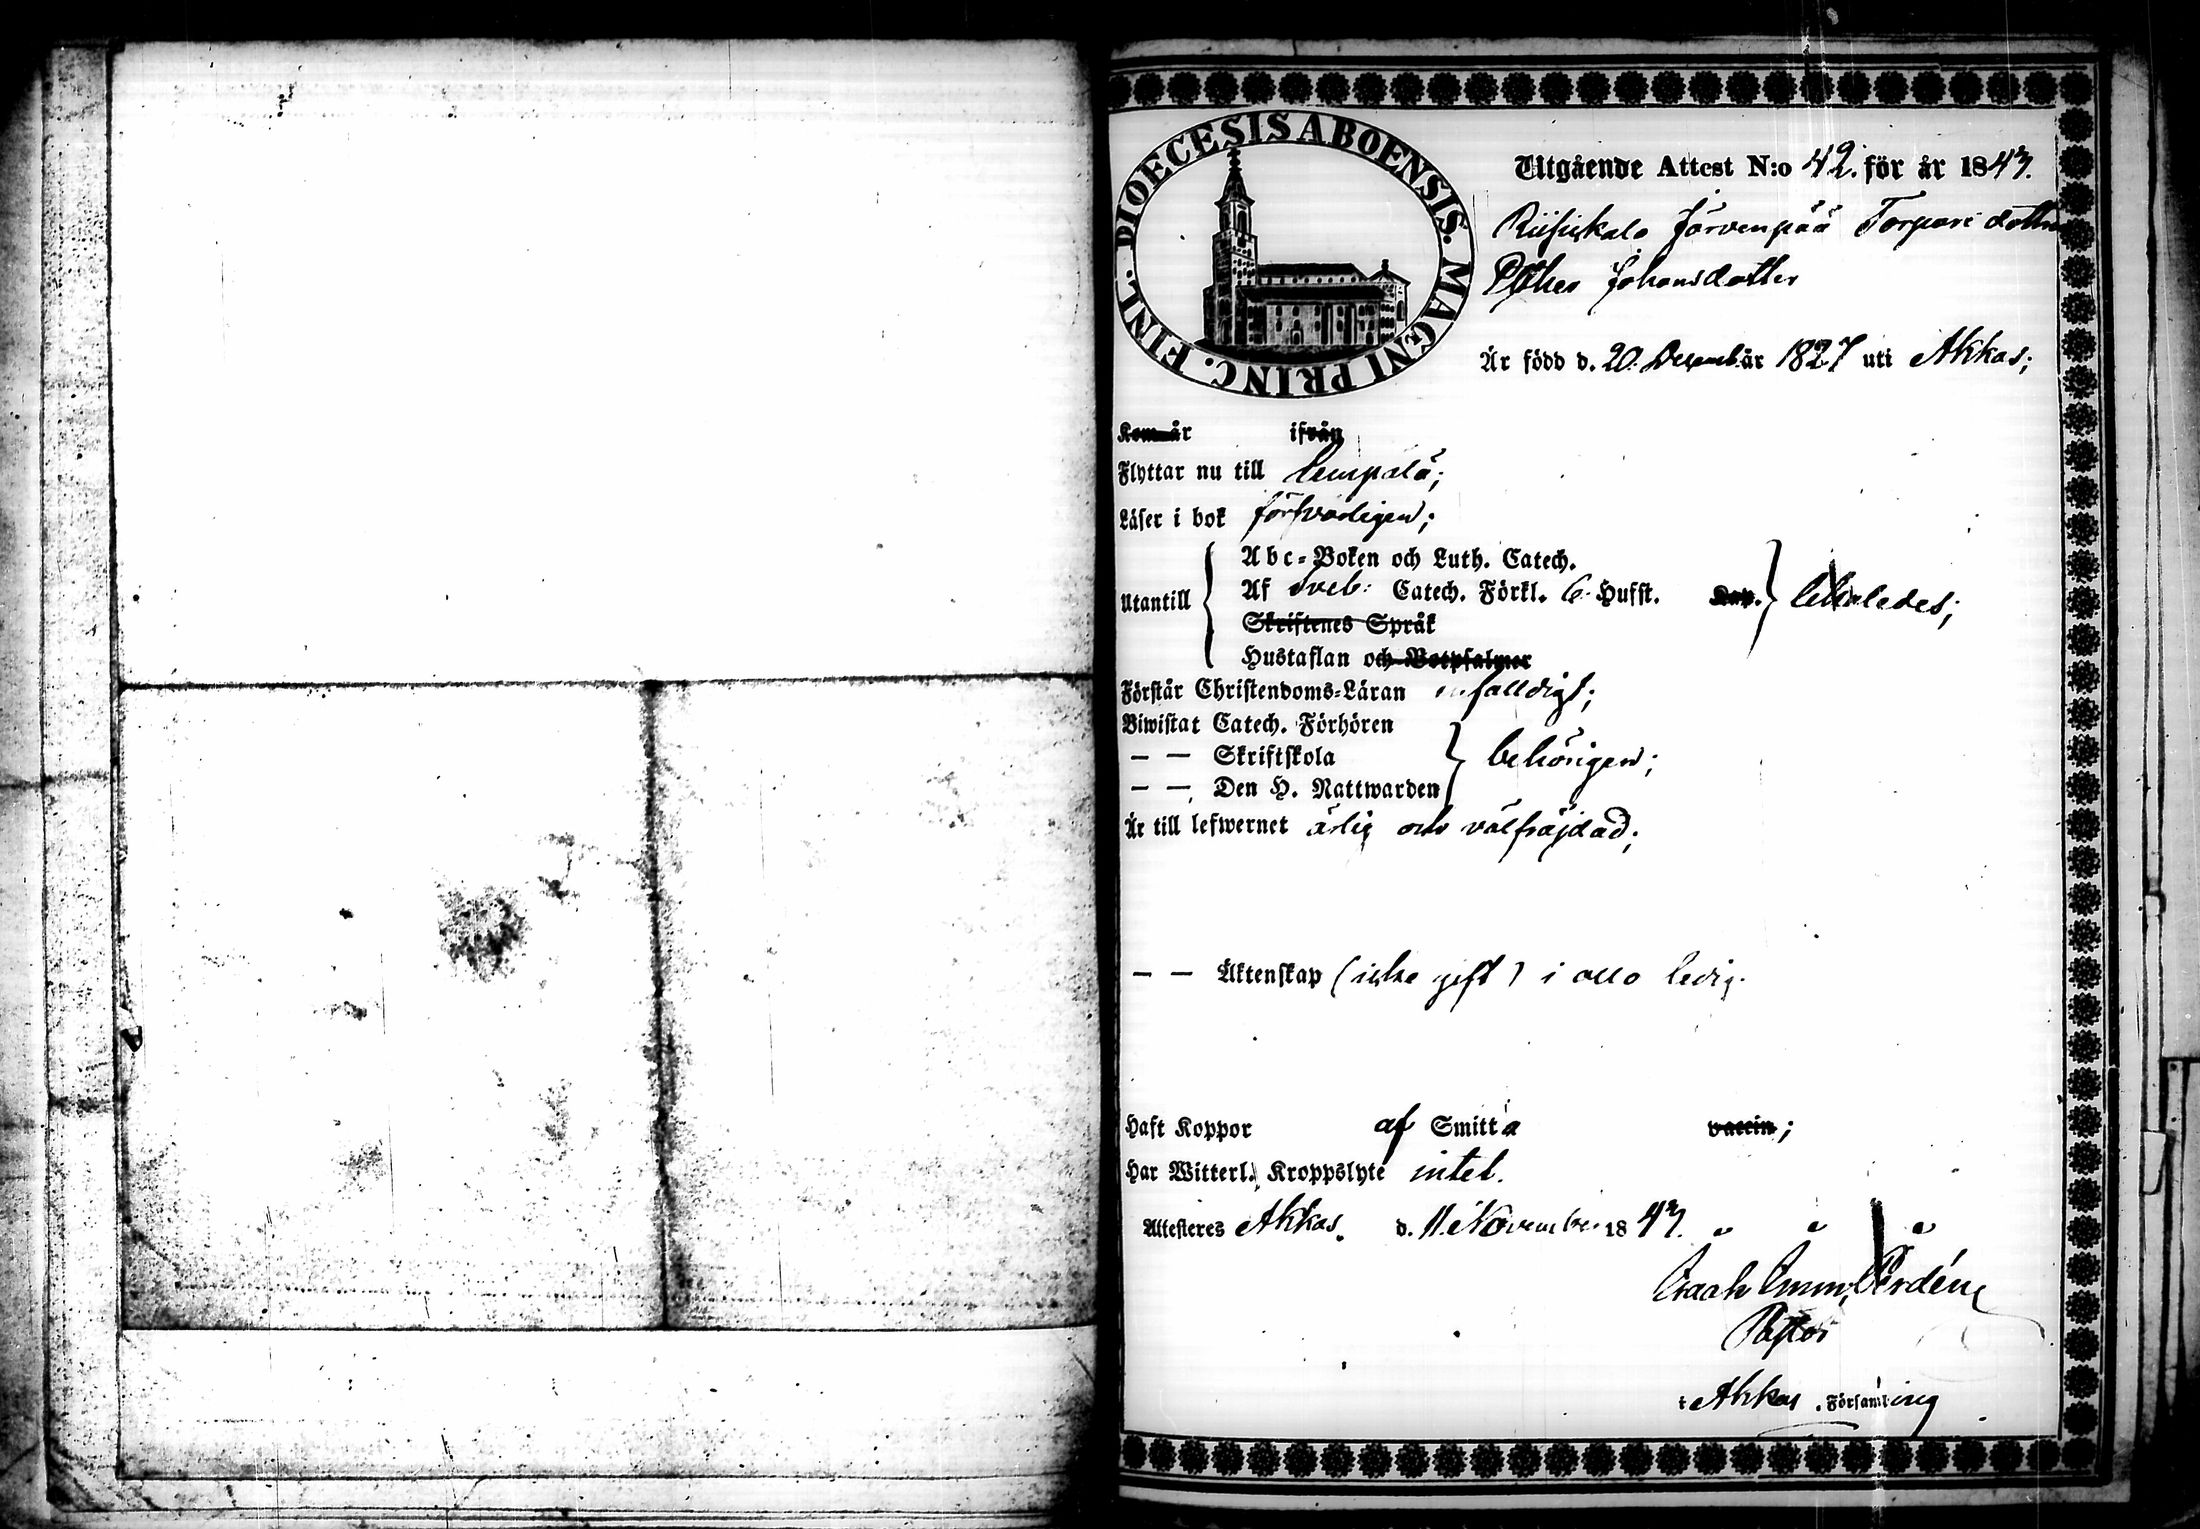 DIOECESIS ABOENSIS. MAGNI PRINC. FINL.
Utgående Attest N:o 42. för år 1847.
Järvenpää Torpare dotter
Johansdotter
Är född d. 20. Decemb. är 1827 uti Akkas;
Kom år ifrån
Flyttar nu till Lempälä;
Läser i bok försvarligen;
Utantill
Abc-Boken och Luth. Catech.
Af Sveb: Catech. Förkl. 6. Hufst. Kap.
Skriftenes Språk
Hustaflan och Botpsalmer
Förstår Christendoms-Läran enfalldigt;
Biwistat Catech. Förhören
— — Skriftskola behörigen;
— — Den H. Nattwarden
Är till lefwernet ärlig och välfräjdad;
— — Äktenskap (icke gift) i allo ledig.
Haft Koppor af Smitta vaccin;
Har Witterl. Kroppslyte intet.
Attesteres Akkas. d. 11. November 1847.
Pastor
i Akkas Församling